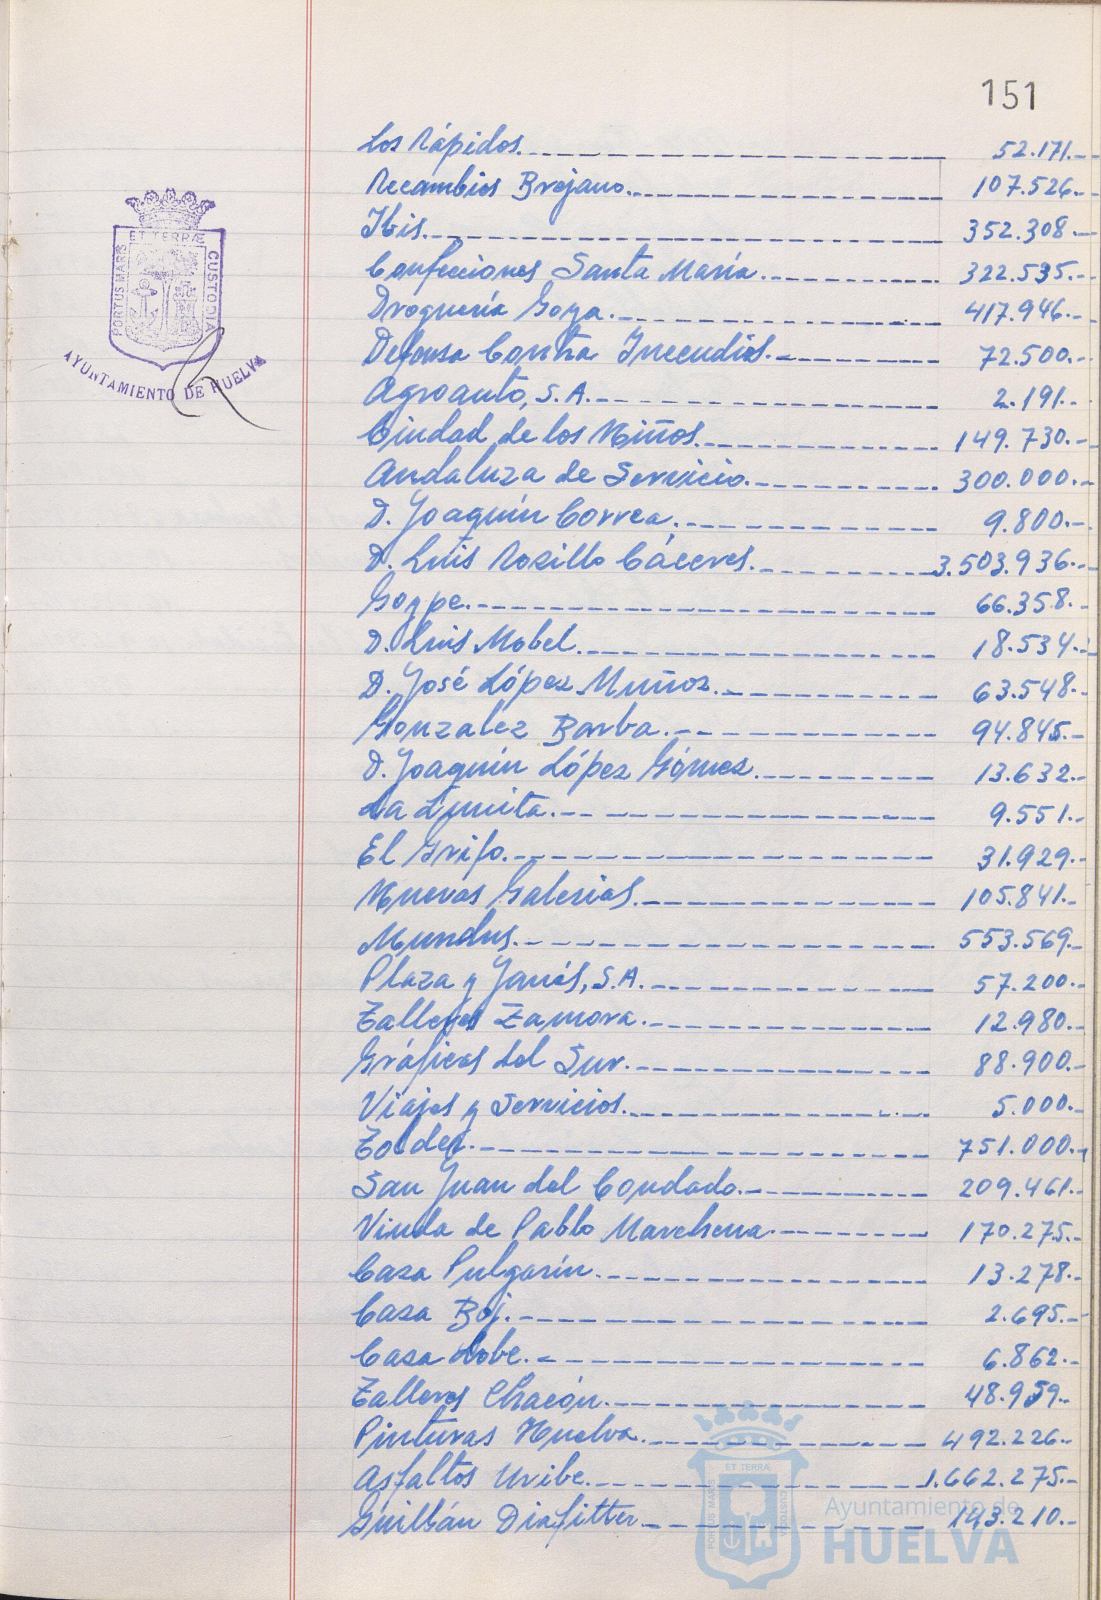 151
Los Rápidos. 52.171.-
Recambios Brejano. 107.526.-
Ibis. 352.308.-
Confecciones Santa María. 322.535.-
Droguería Goya. 417.946.-
Defensa Contra Incendios. 72.500.-
Agroauto, S.A. 2.191.-
Ciudad de los Niños. 149.730.-
Andaluza de Servicio. 300.000.-
D. Joaquín Correa. 9.800.-
D. Luis Rozillo Cáceres. 3.503.936.-
Goype. 66.358.-
D. Luis Mobel. 18.534.-
D. José López Muñoz. 63.548.-
Gonzalez Barba. 94.845.-
D. Joaquín López Gómez. 13.632.-
La 9.551.-
El Grifo. 31.929.-
Nuevas Galerias. 105.841.-
Mundus. 553.569.-
Plaza y Janés, S.A. 57.200.-
Talleres Zamora. 12.980.-
Gráficas del Sur. 88.900.-
Viajes y Servicios. 5.000.-
751.000.-
San Juan del Condado. 209.461.-
Viuda de Pablo Marchena 170.275.-
Casa Pulgarín. 13.278.-
Casa Boj. 2.695.-
Casa Lobe. 6.862.-
Talleres Chacón. 48.959.-
Pinturas Huelva. 492.226.-
Asfaltos Uribe. 1.662.275.-
Guillén 143.210.-
PORTUS MARIS ET TERRÆ CUSTODIA
AYUNTAMIENTO DE HUELVA
PORTUS MARIS ET TERRÆ CUSTODIA
Ayuntamiento de
HUELVA